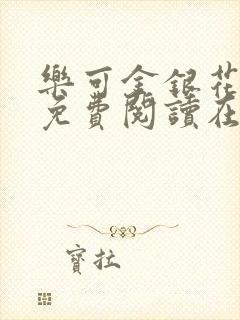 樂可金銀花
免費閱讀在
寶拉